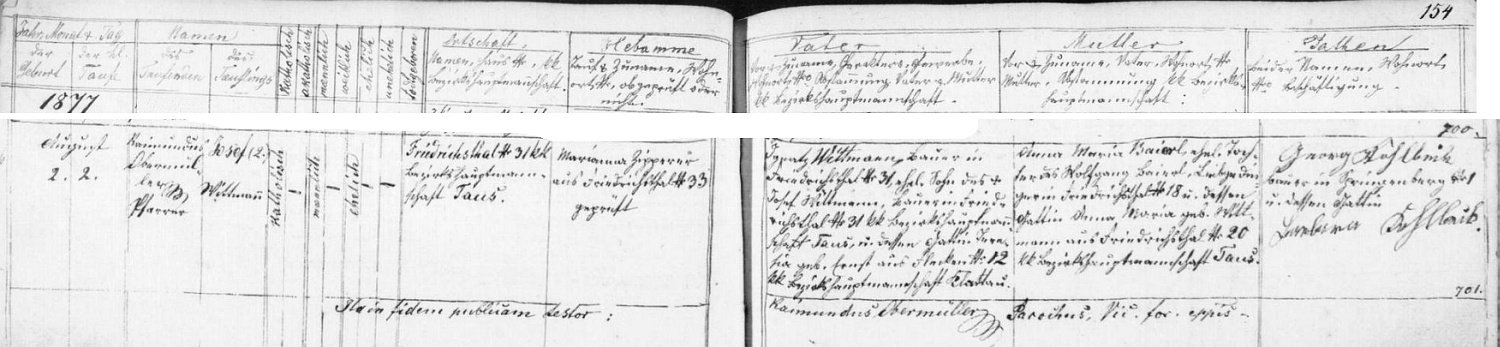 154
Jahr, Monat & Tag
der Geburt
der hl. Taufe
Namen
des Taufenden
des Täuflings
Katholisch
akatholisch
männlich
weiblich
ehelich
unehelich
todtgeboren
Ortschaft,
Namen, Haus No, kk
Bezirkshauptmannschaft.
Hebamme
Tauf- & Zuname, Wohn-
ort, No, ob geprüft oder
nicht.
Vater
Vor- & Zuname, Charakter, Gewerbe,
Wohnort, No, Abstammung, Vater & Mutter
kk Bezirkshauptmannschaft.
Mutter
Vor- & Zuname, Vater, Wohnort, No
Mutter, Abstammung kk Bezirks-
hauptmannschaft:
Pathen
beider Namen, Wohnort,
No Beschäftigung.
1877
700.
August
2. 2.
Raimundus
Obermül-
ler
Pfarrer
Josef (2.)
Wittmann
Katholisch
männlich
ehelich
Friedrichsthal No 31 kk
Bezirkshauptmann-
schaft Taus.
Marianna Zipperer
aus Friedrichsthal No 33
geprüft
Ignatz Wittmann, Bauer in
Friedrichsthal No 31, ehel. Sohn des †
Josef Wittmann, Bauer in Fried-
richsthal No 31 kk Bezirkshauptmann-
schaft Taus, u. dessen Gattin There-
sia geb. Ernst aus Flecken No 12
kk Bezirkshauptmannschaft Klattau.
Anna Maria Baierl, ehel. Toch-
ter des Wolfgang Baierl, Leibgedin-
ger in Friedrichsthal No 18 u. dessen
Gattin Anna Maria geb. Witt-
mann aus Friedrichsthal No 20
kk Bezirkshauptmannschaft Taus.
Georg Kohlbeck
Bauer in Springenberg No 1
u. dessen Gattin
Barbara Kohlbeck.
701.
Ita in fidem publicam testor:
Raimundus Obermüller Parochus, Vic. for. eppis-